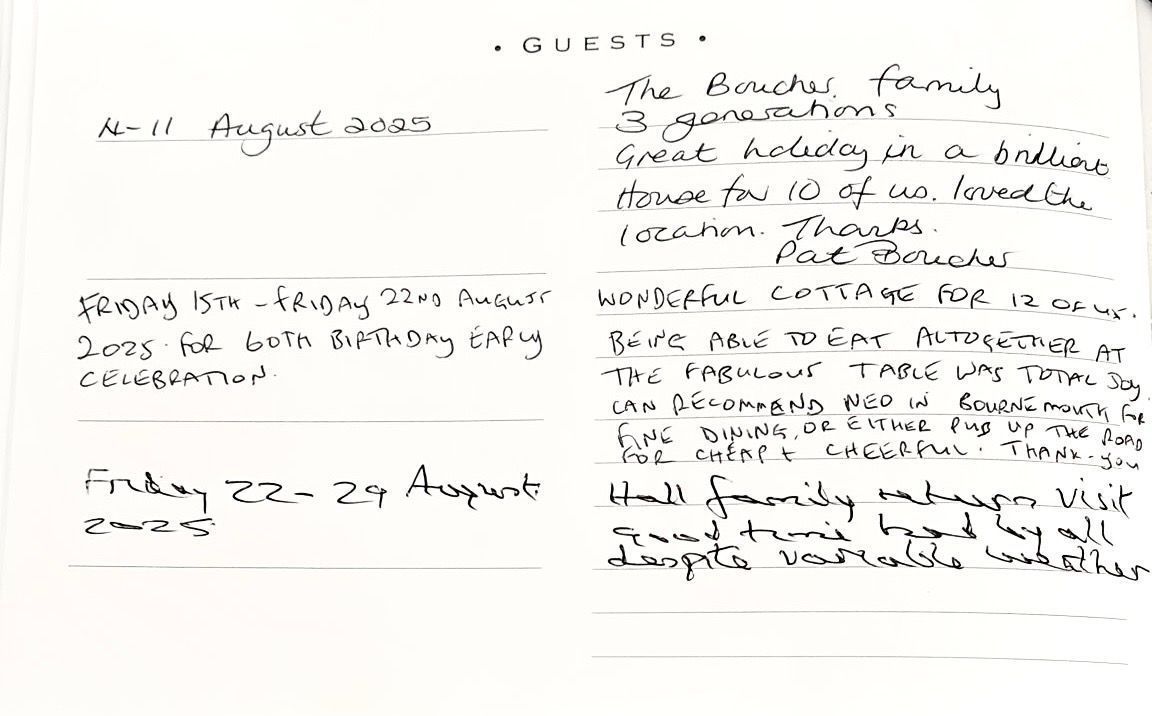 • GUESTS •
4-11 August 2025
The Boucher family
3 generations
Great holiday in a brilliant
House for 10 of us. loved the
location. Thanks.
Pat Boucher
FRIDAY 15TH - FRIDAY 22ND AUGUST
2025. FOR 60TH BIRTHDAY EARLY
CELEBRATION.
WONDERFUL COTTAGE FOR 12 OF US.
BEING ABLE TO EAT ALTOGETHER AT
THE FABULOUS TABLE WAS TOTAL JOY
CAN RECOMMEND NEO IN BOURNEMOUTH FOR
FINE DINING, OR EITHER PUB UP THE ROAD
FOR CHEAP + CHEERFUL. THANK-YOU
Friday 22-29 August
2025
Hall family return visit
good time had by all
despite variable weather